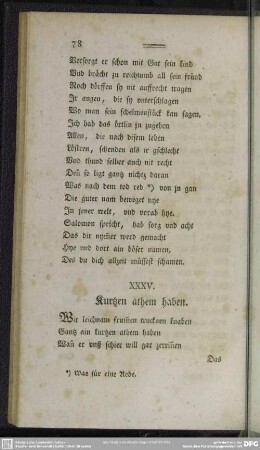 78
Versorgt er schon mit Gut sein kind
Vnd brächt zu reichtumb all sein fründ
Noch dörffen sy nit auffrecht tragen
Ir augen, die sy vnterschlagen
Wo man sein schelmenstück kan sagen.
Ich hab das örtlin zu zugeben
Allen, die nach disem leben
Löstren, schenden als ir gschlecht
Vnd thund selber auch nit recht
Deñ so ligt gantz nichtz daran
Was nach dem tod red *) von ju gan
Die guter nam beweget nye
In jener welt, vnd vorab hye.
Salomon spricht, hab sorg vnd acht
Das din nym̃er werd gemacht
Hye vnd dort ain böser namen,
Des du dich allzeit müssest schamen.
XXXV.
Kurtzen athem haben.
Wir leichnam frum̃en wachsen knaben
Gantz ain kurtzen athem haben
Wañ er vnß schier will gar zerriñen
Das
*) Was für eine Rede.